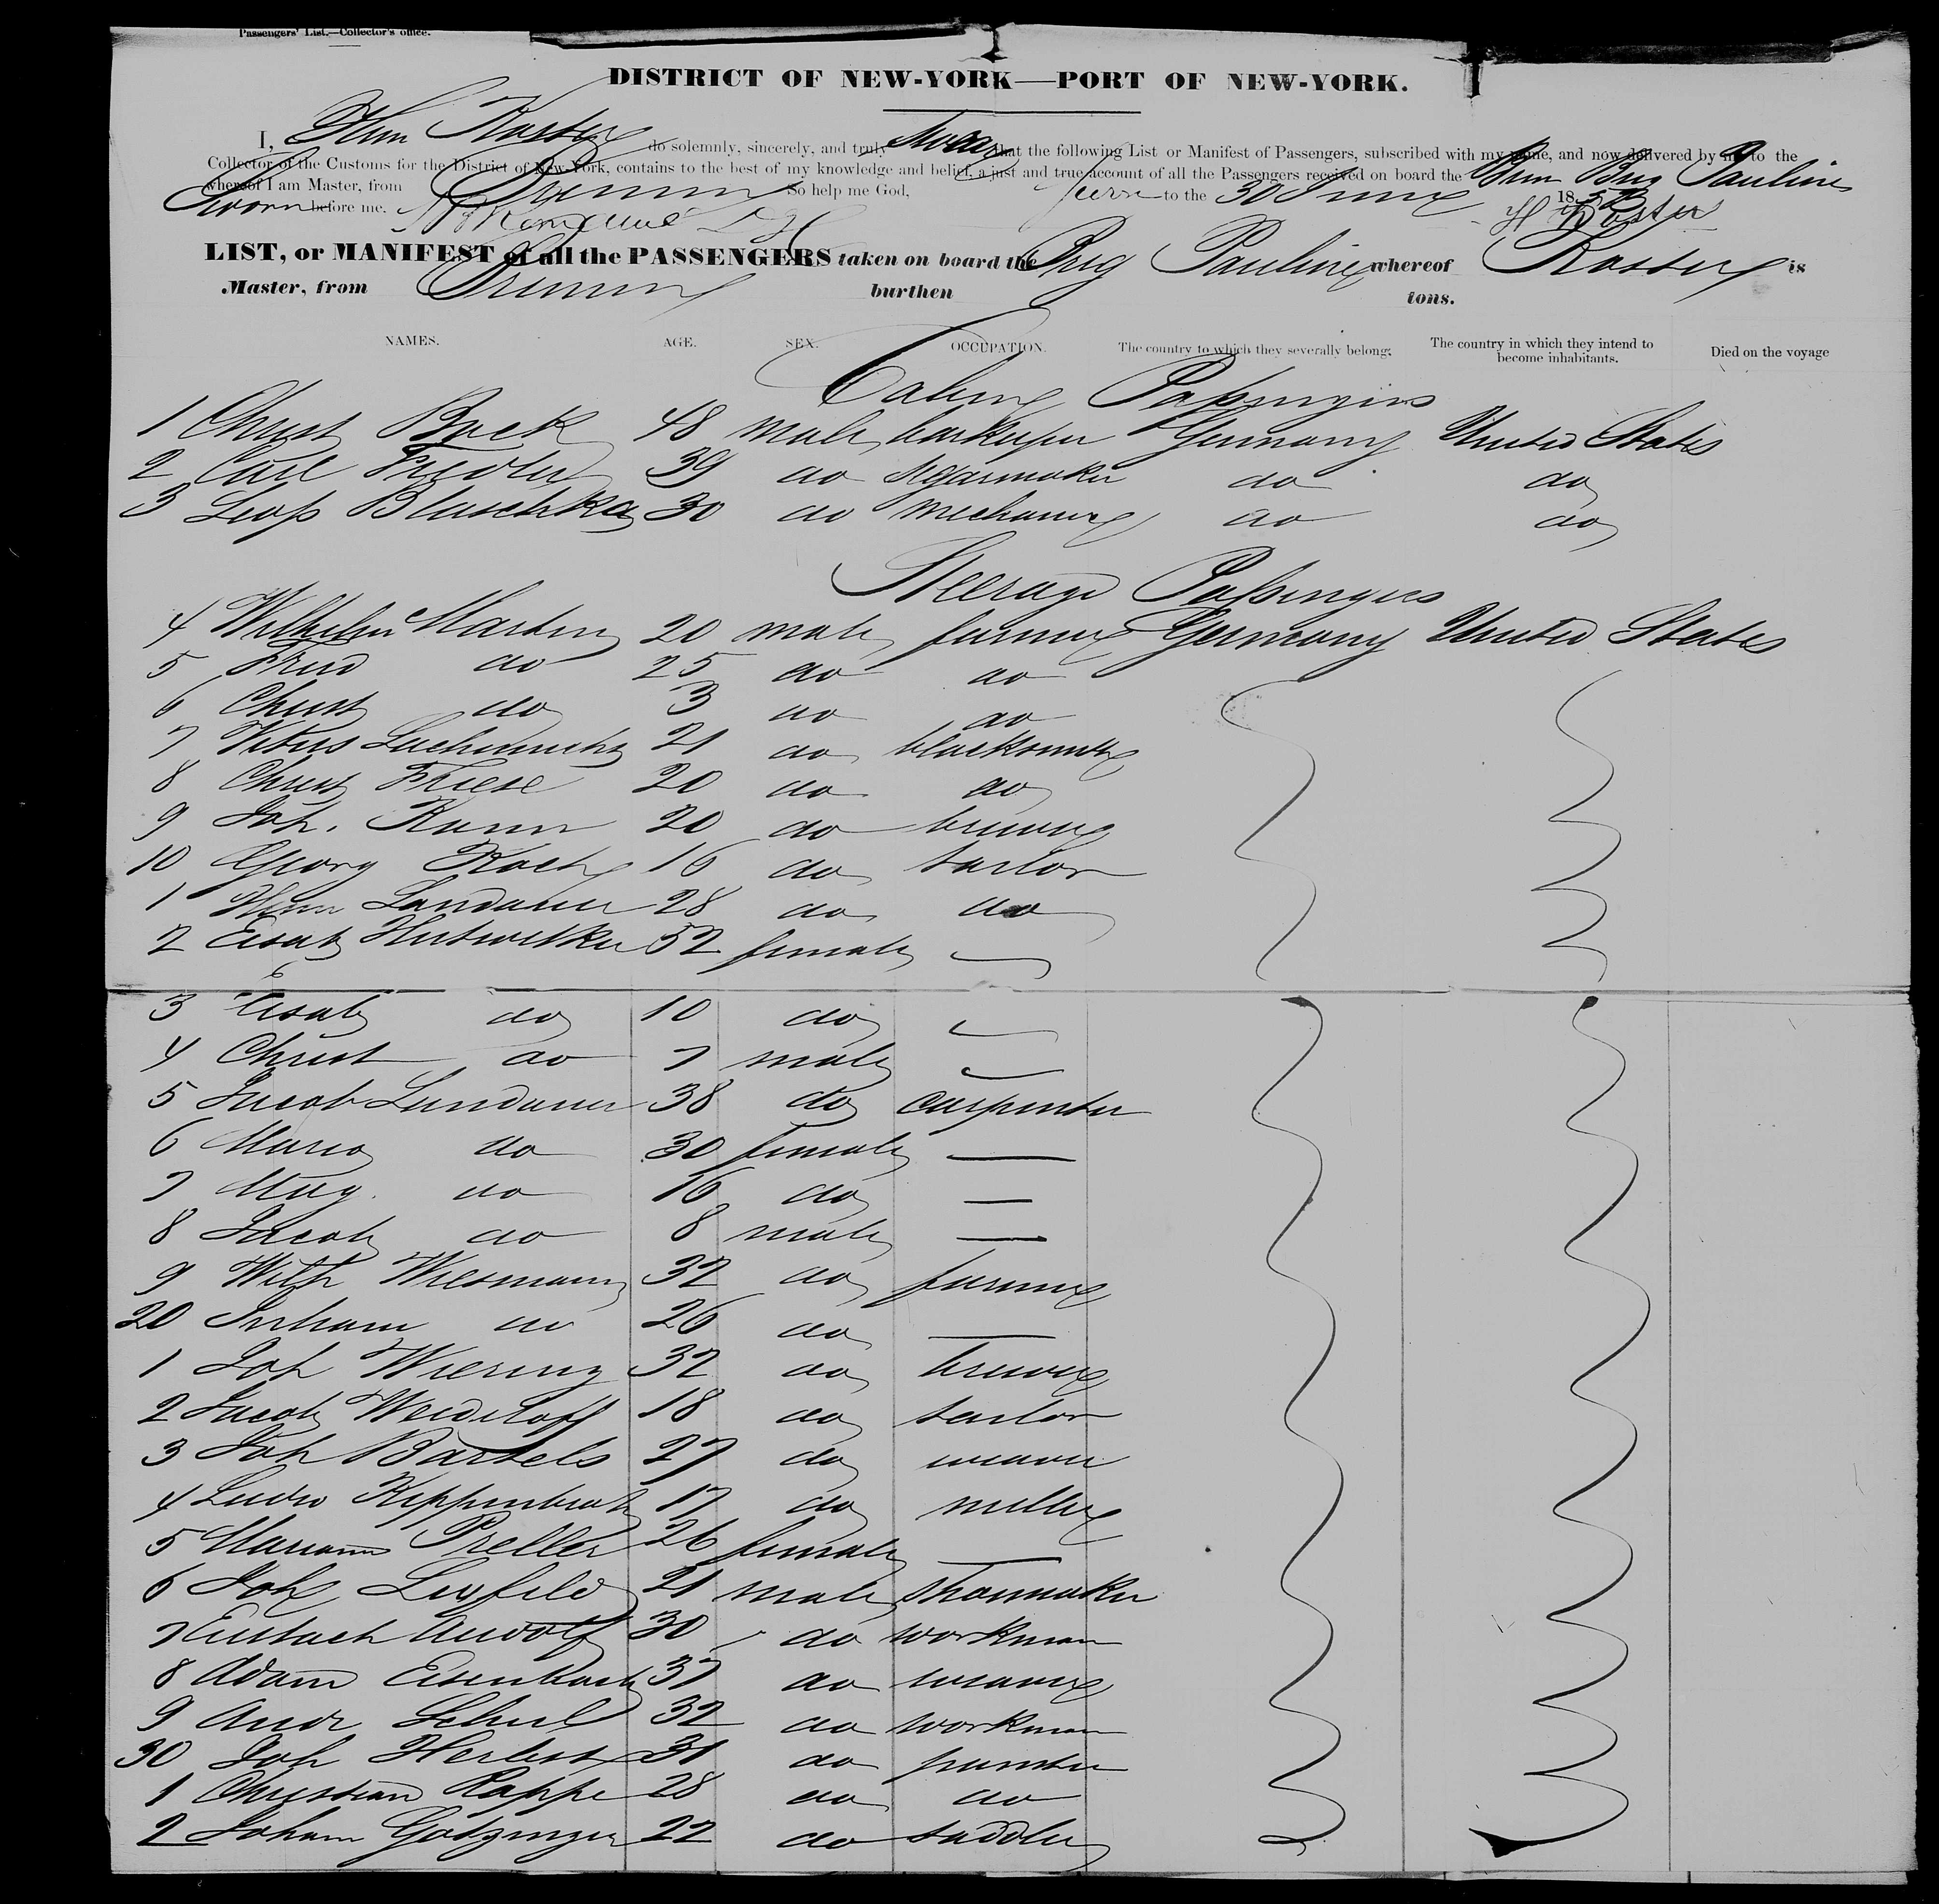 Passengers' List.—Collector's office.
DISTRICT OF NEW-YORK—PORT OF NEW-YORK.
I, Koster do solemnly, sincerely, and truly Swear that the following List or Manifest of Passengers, subscribed with my name, and now delivered by me to the
Collector of the Customs for the District of New-York, contains to the best of my knowledge and belief, a just and true account of all the Passengers received on board the Brem Brig Pauline
whereof I am Master, from Bremen So help me God,
Sworn before me, to the 30 June 1853
H Koster
LIST, or MANIFEST of all the PASSENGERS taken on board the Brig Pauline whereof Koster is
Master, from Bremen burthen tons.
NAMES. AGE. SEX. OCCUPATION. The country to which they severally belong. The country in which they intend to become inhabitants. Died on the voyage
Cabin Passengers
1 Christ Bock 48 male barkeeper Germany United States
2 Carl 39 do segarmaker do do
3 Leop Blaschka 30 do mechanic do do
Steerage Passengers
4 Wilhelm Martin 20 male farmer Germany United States
5 Fried do 25 do do
6 Christ do 3 do do
7 Vitus 21 do blacksmith
8 Christ Friese 20 do do
9 Joh. Kunn 20 do brewer
10 Georg Koch 16 do tailor
1 Landauer 28 do do
2 Elsab 52 female
3 Elsab do 10 do
4 Christ do 7 male
5 Jacob Landauer 38 do carpenter
6 Maria do 30 female —
7 Mag. do 16 do —
8 Jacob do 8 male —
9 Wilh Wiesmann 32 do farmer
20 Johann do 26 do —
1 Joh Wiering 32 do brewer
2 Jacob 18 do tailor
3 Joh Bartels 27 do weaver
4 Ludw 17 do miller
5 Mariann Preller 26 female —
6 Joh 21 male shoemaker
7 30 do workman
8 Adam Eisenbach 37 do weaver
9 Andr Scheel 32 do workman
30 Joh Herbst 31 do painter
1 Christian Rappe 28 do do
2 Johann Götzinger 22 do saddler